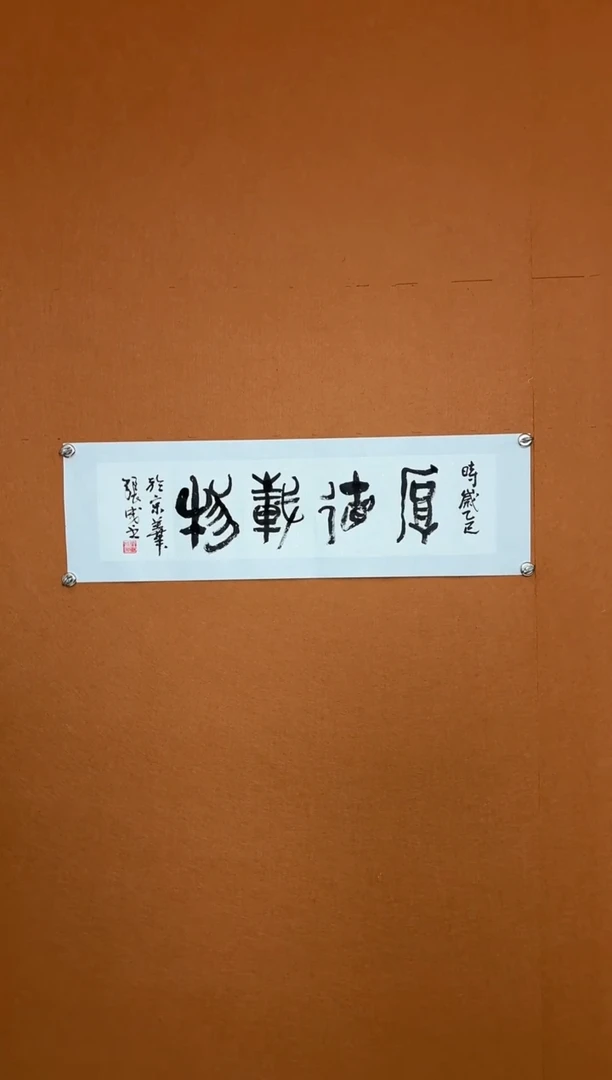 時歲乙巳
厚德載物
於京華
張成